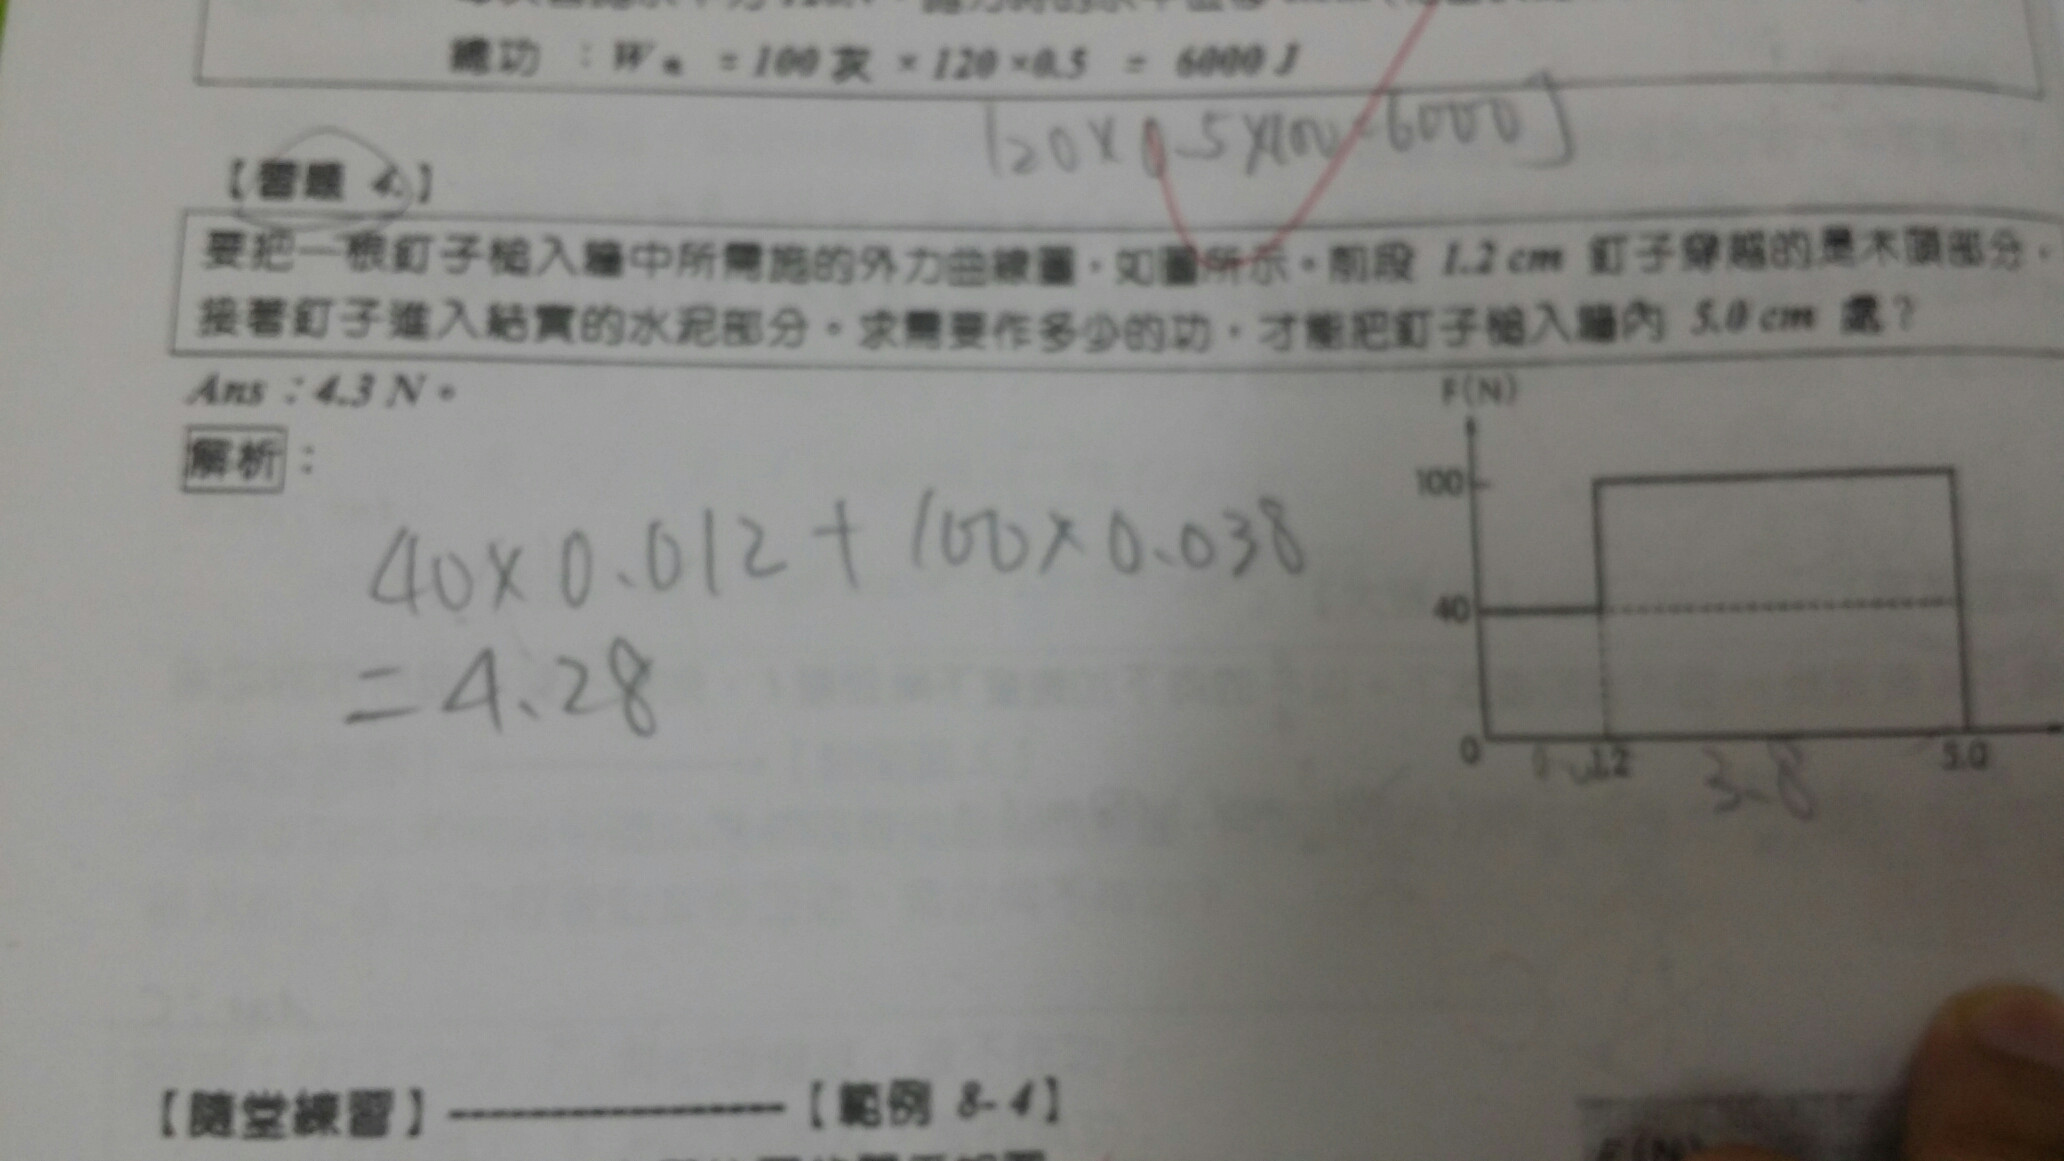 總功 ：W = 100 次 × 120 ×0.5 = 6000 J
120×0.5×100=6000J
【習題 4.】
要把一根釘子槌入牆中所需施的外力曲線圖，如圖所示。前段 1.2 cm 釘子穿越的是木頭部分，
接著釘子進入結實的水泥部分。求需要作多少的功，才能把釘子槌入牆內 5.0 cm 處？
Ans：4.3 N。
F(N)
解析：
100
40×0.012+100×0.038
40
=4.28
0 1.2 5.0
3.8
【隨堂練習】----------------【範例 8-4】
F(N)